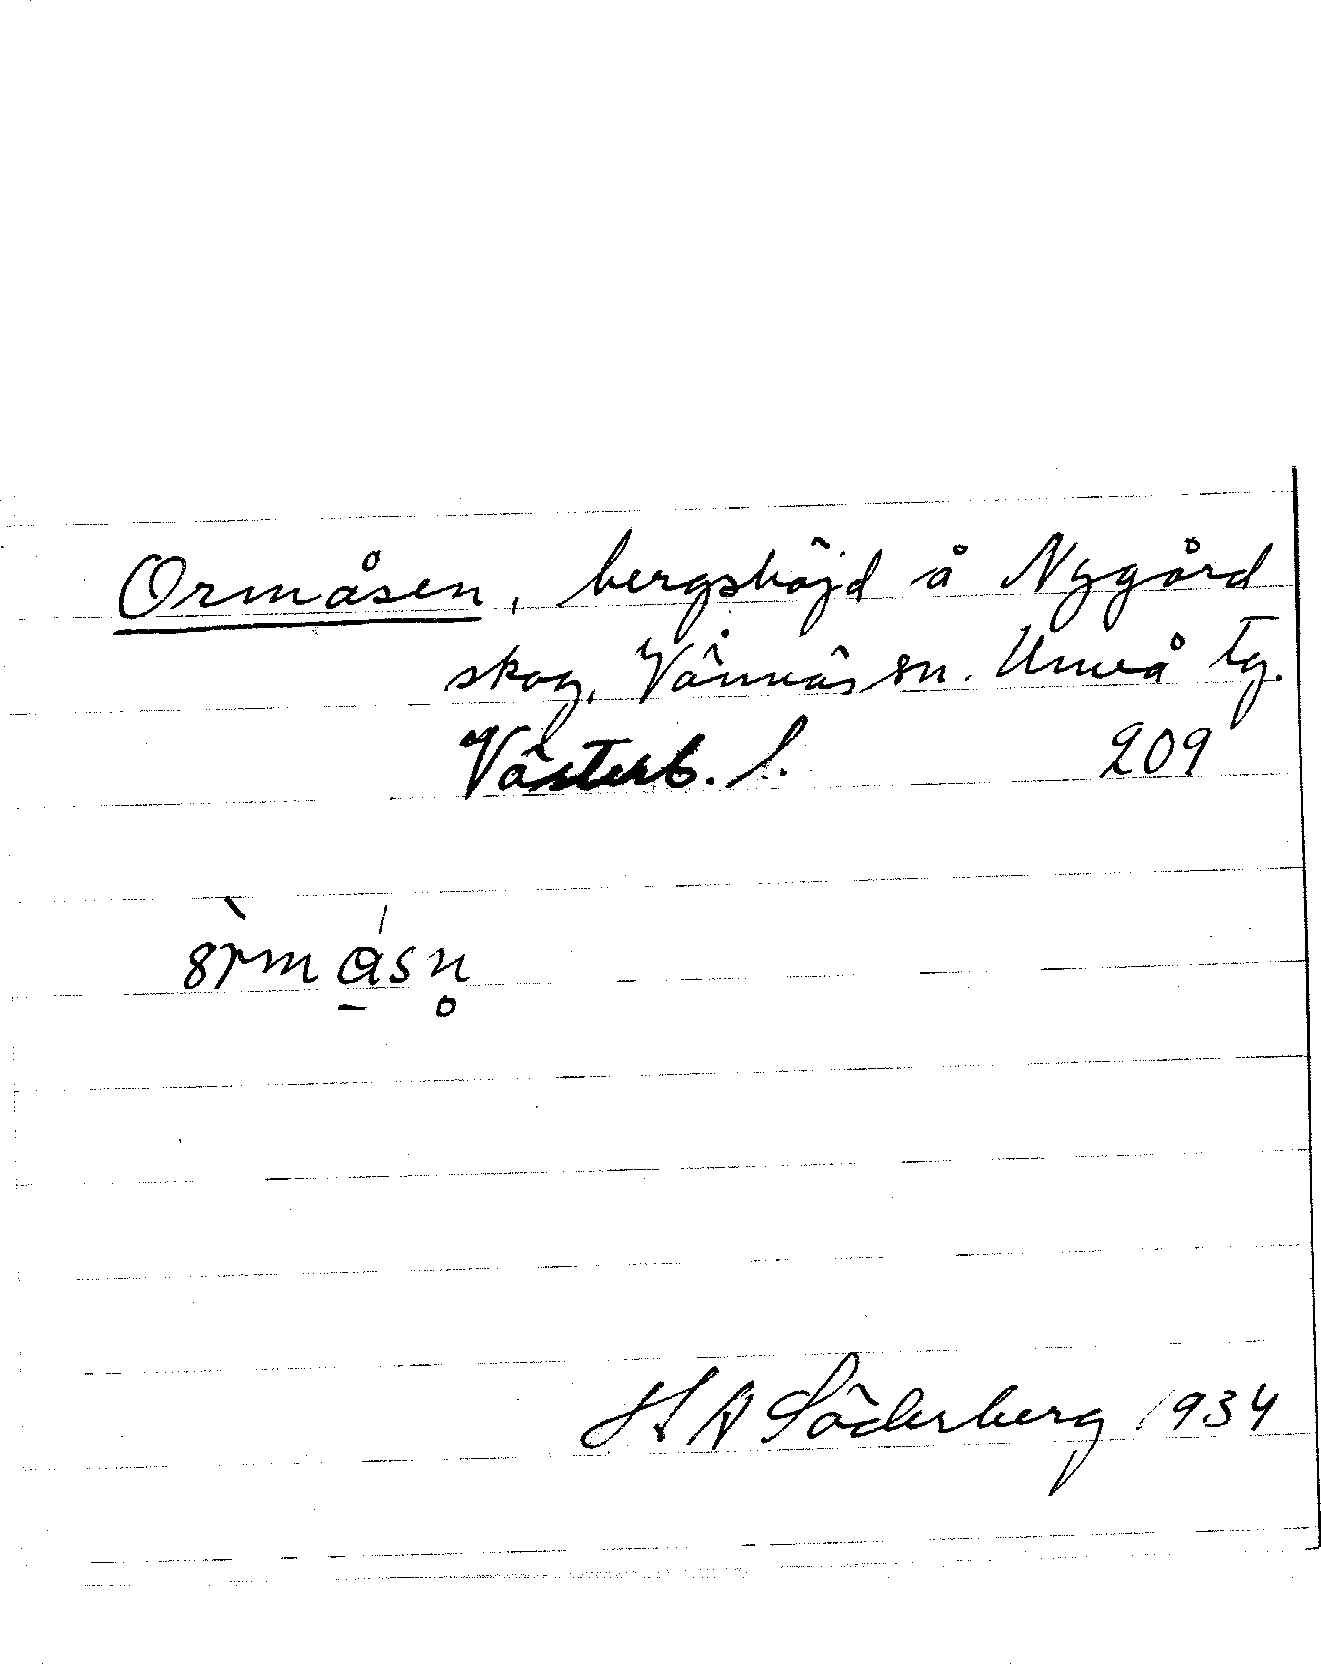 Ormåsen, bergshöjd å Nygård
skog, Vännäs sn. Umeå tg.
Västerb. l. 209
8̀rma̱̍sn̥
H A Söderberg 1934